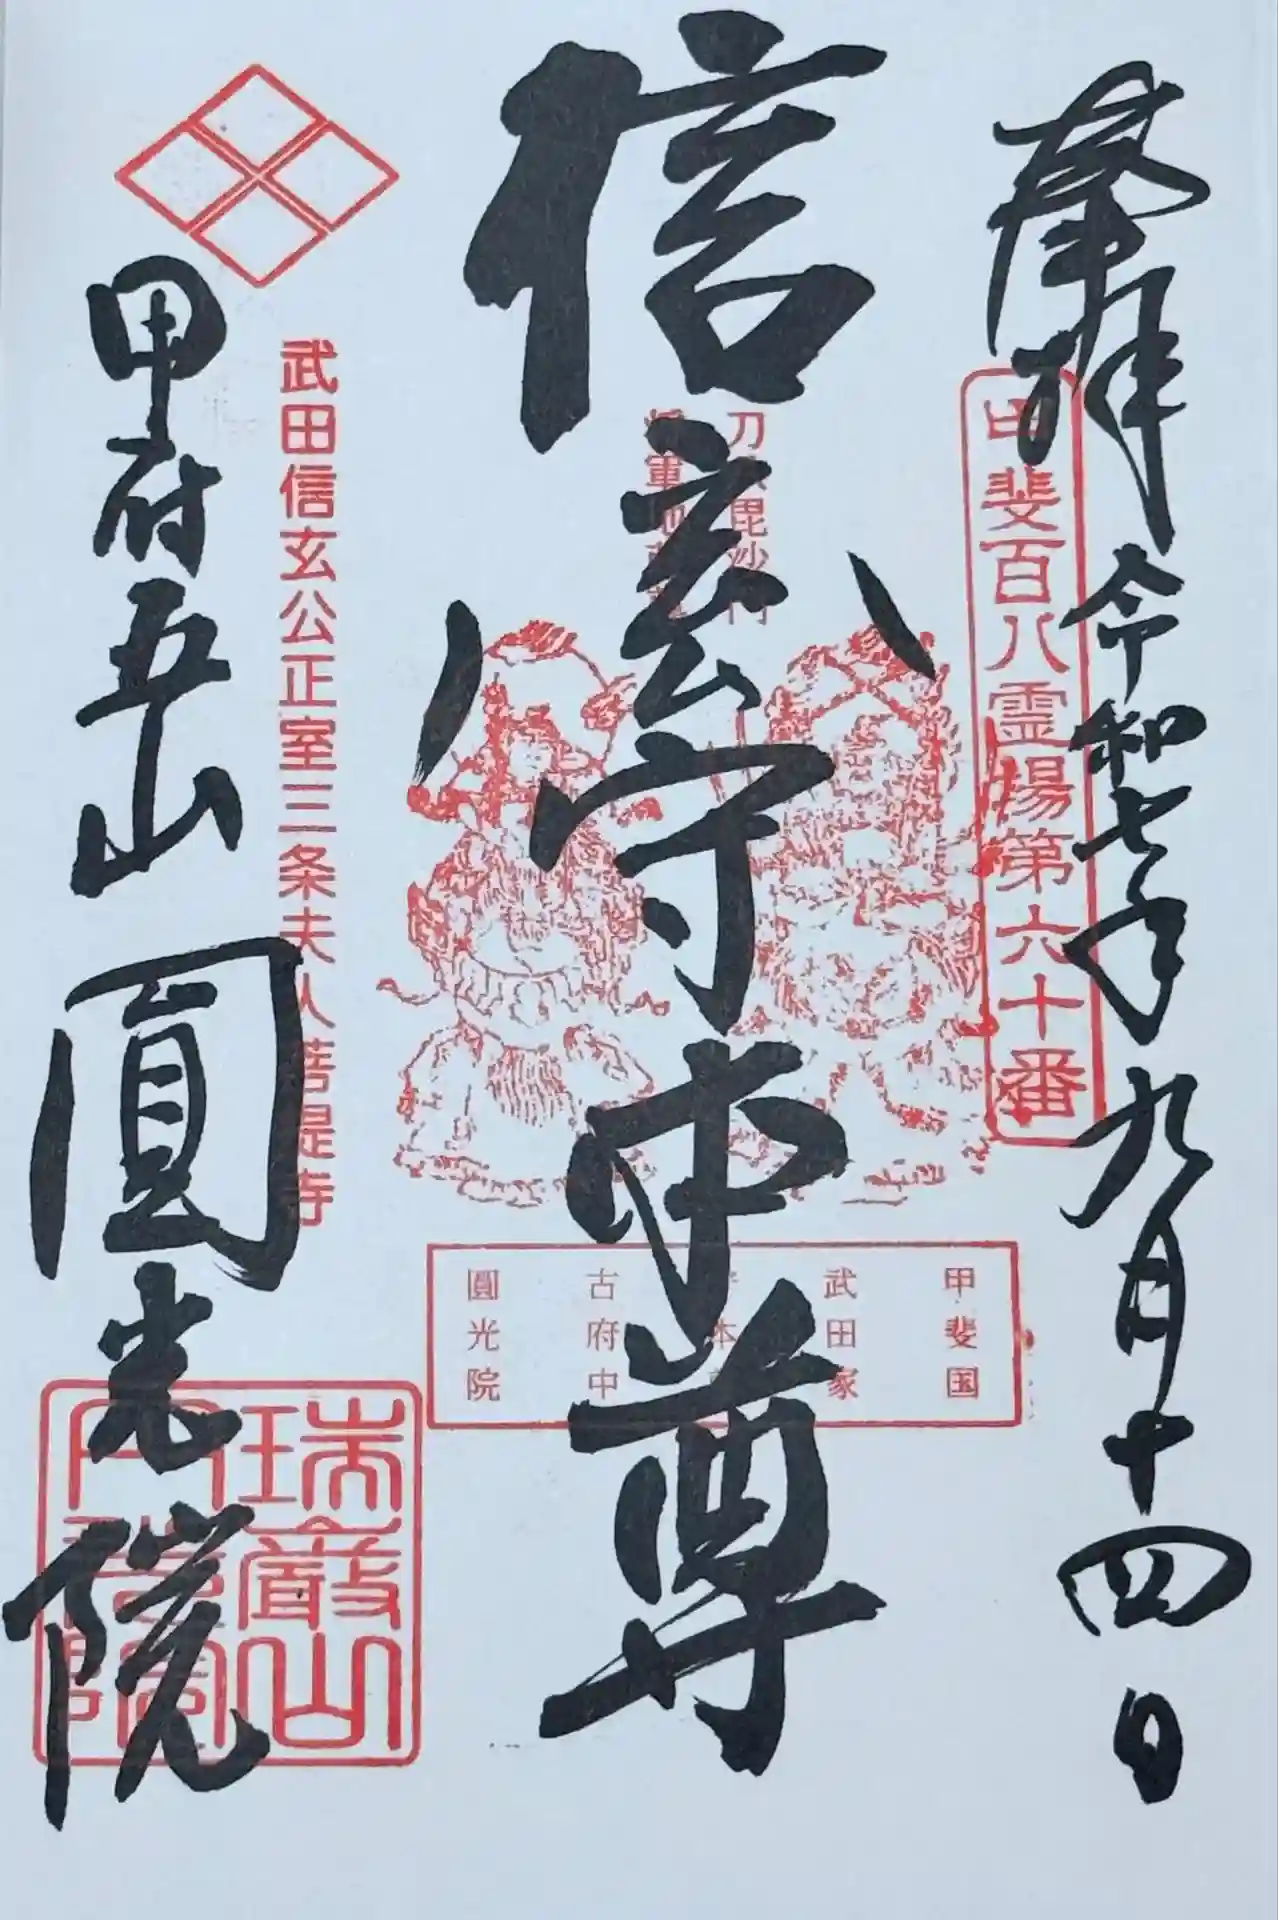 奉拝 令和七年九月十四日
甲斐百八霊場第六十番
信玄守本尊
刀 毘沙門
将軍地蔵
甲斐国
武田家
守本尊
古府中
圓光院
武田信玄公正室三条夫人菩提寺
甲府五山 圓光院
瑞巌山